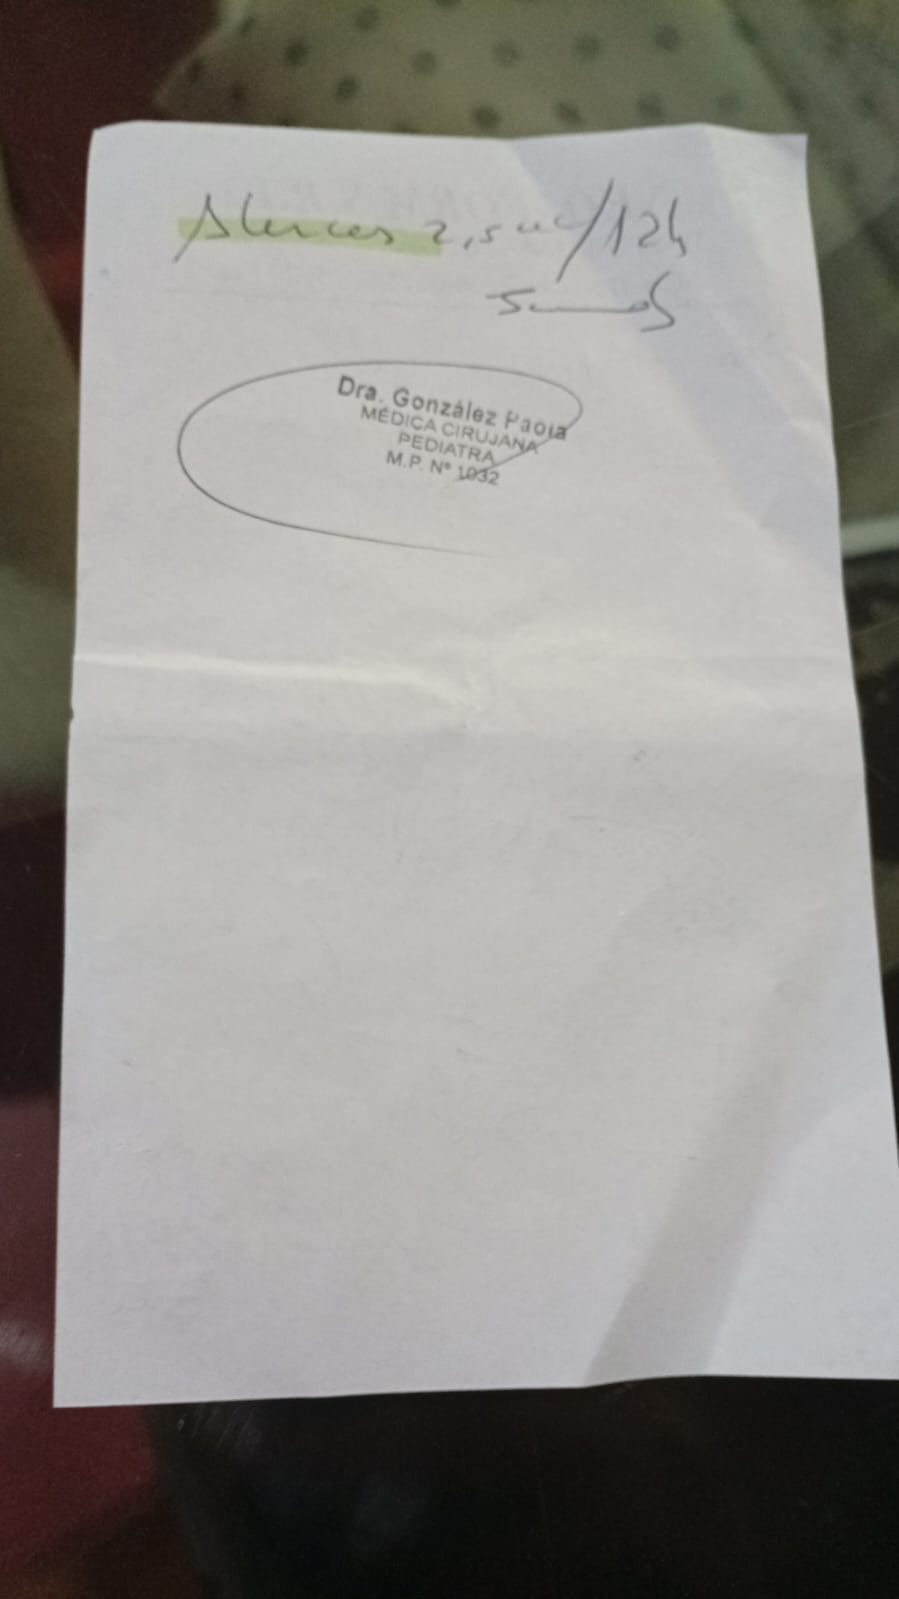 Alercas 2,5 ml/12h
5 
Dra. González Paola
MÉDICA CIRUJANA
PEDIATRA
M.P. Nº 1032